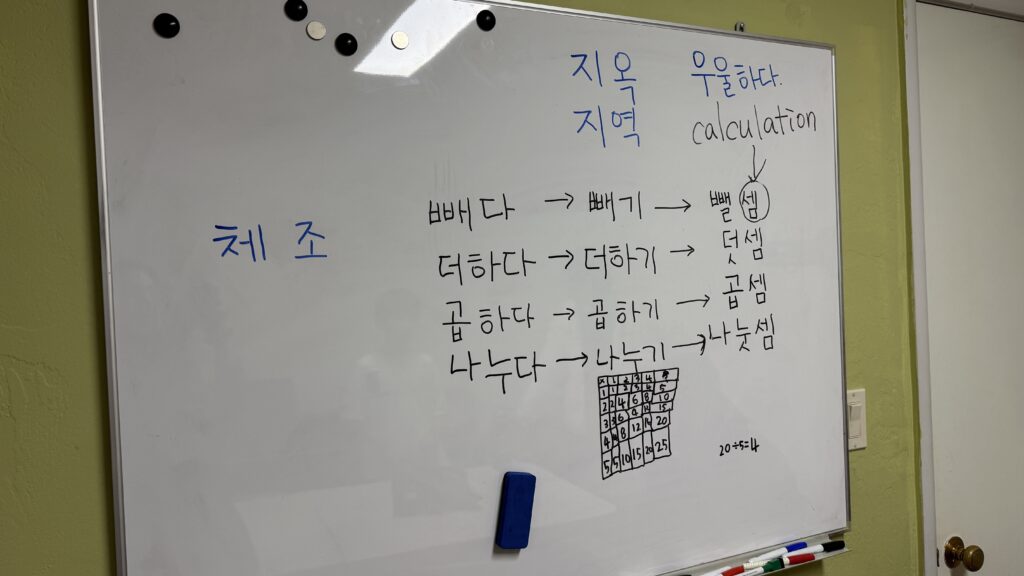 지옥 우울하다.
지역 calculation
체조
빼다 → 빼기 → 뺄셈
더하다 → 더하기 → 덧셈
곱하다 → 곱하기 → 곱셈
나누다 → 나누기 → 나눗셈
x 1 2 3 4
1 1 2 3 4 5
2 2 4 6 8 10
3 3 6 9 12 15
4 4 8 12 16 20
5 5 10 15 20 25
20÷5=4